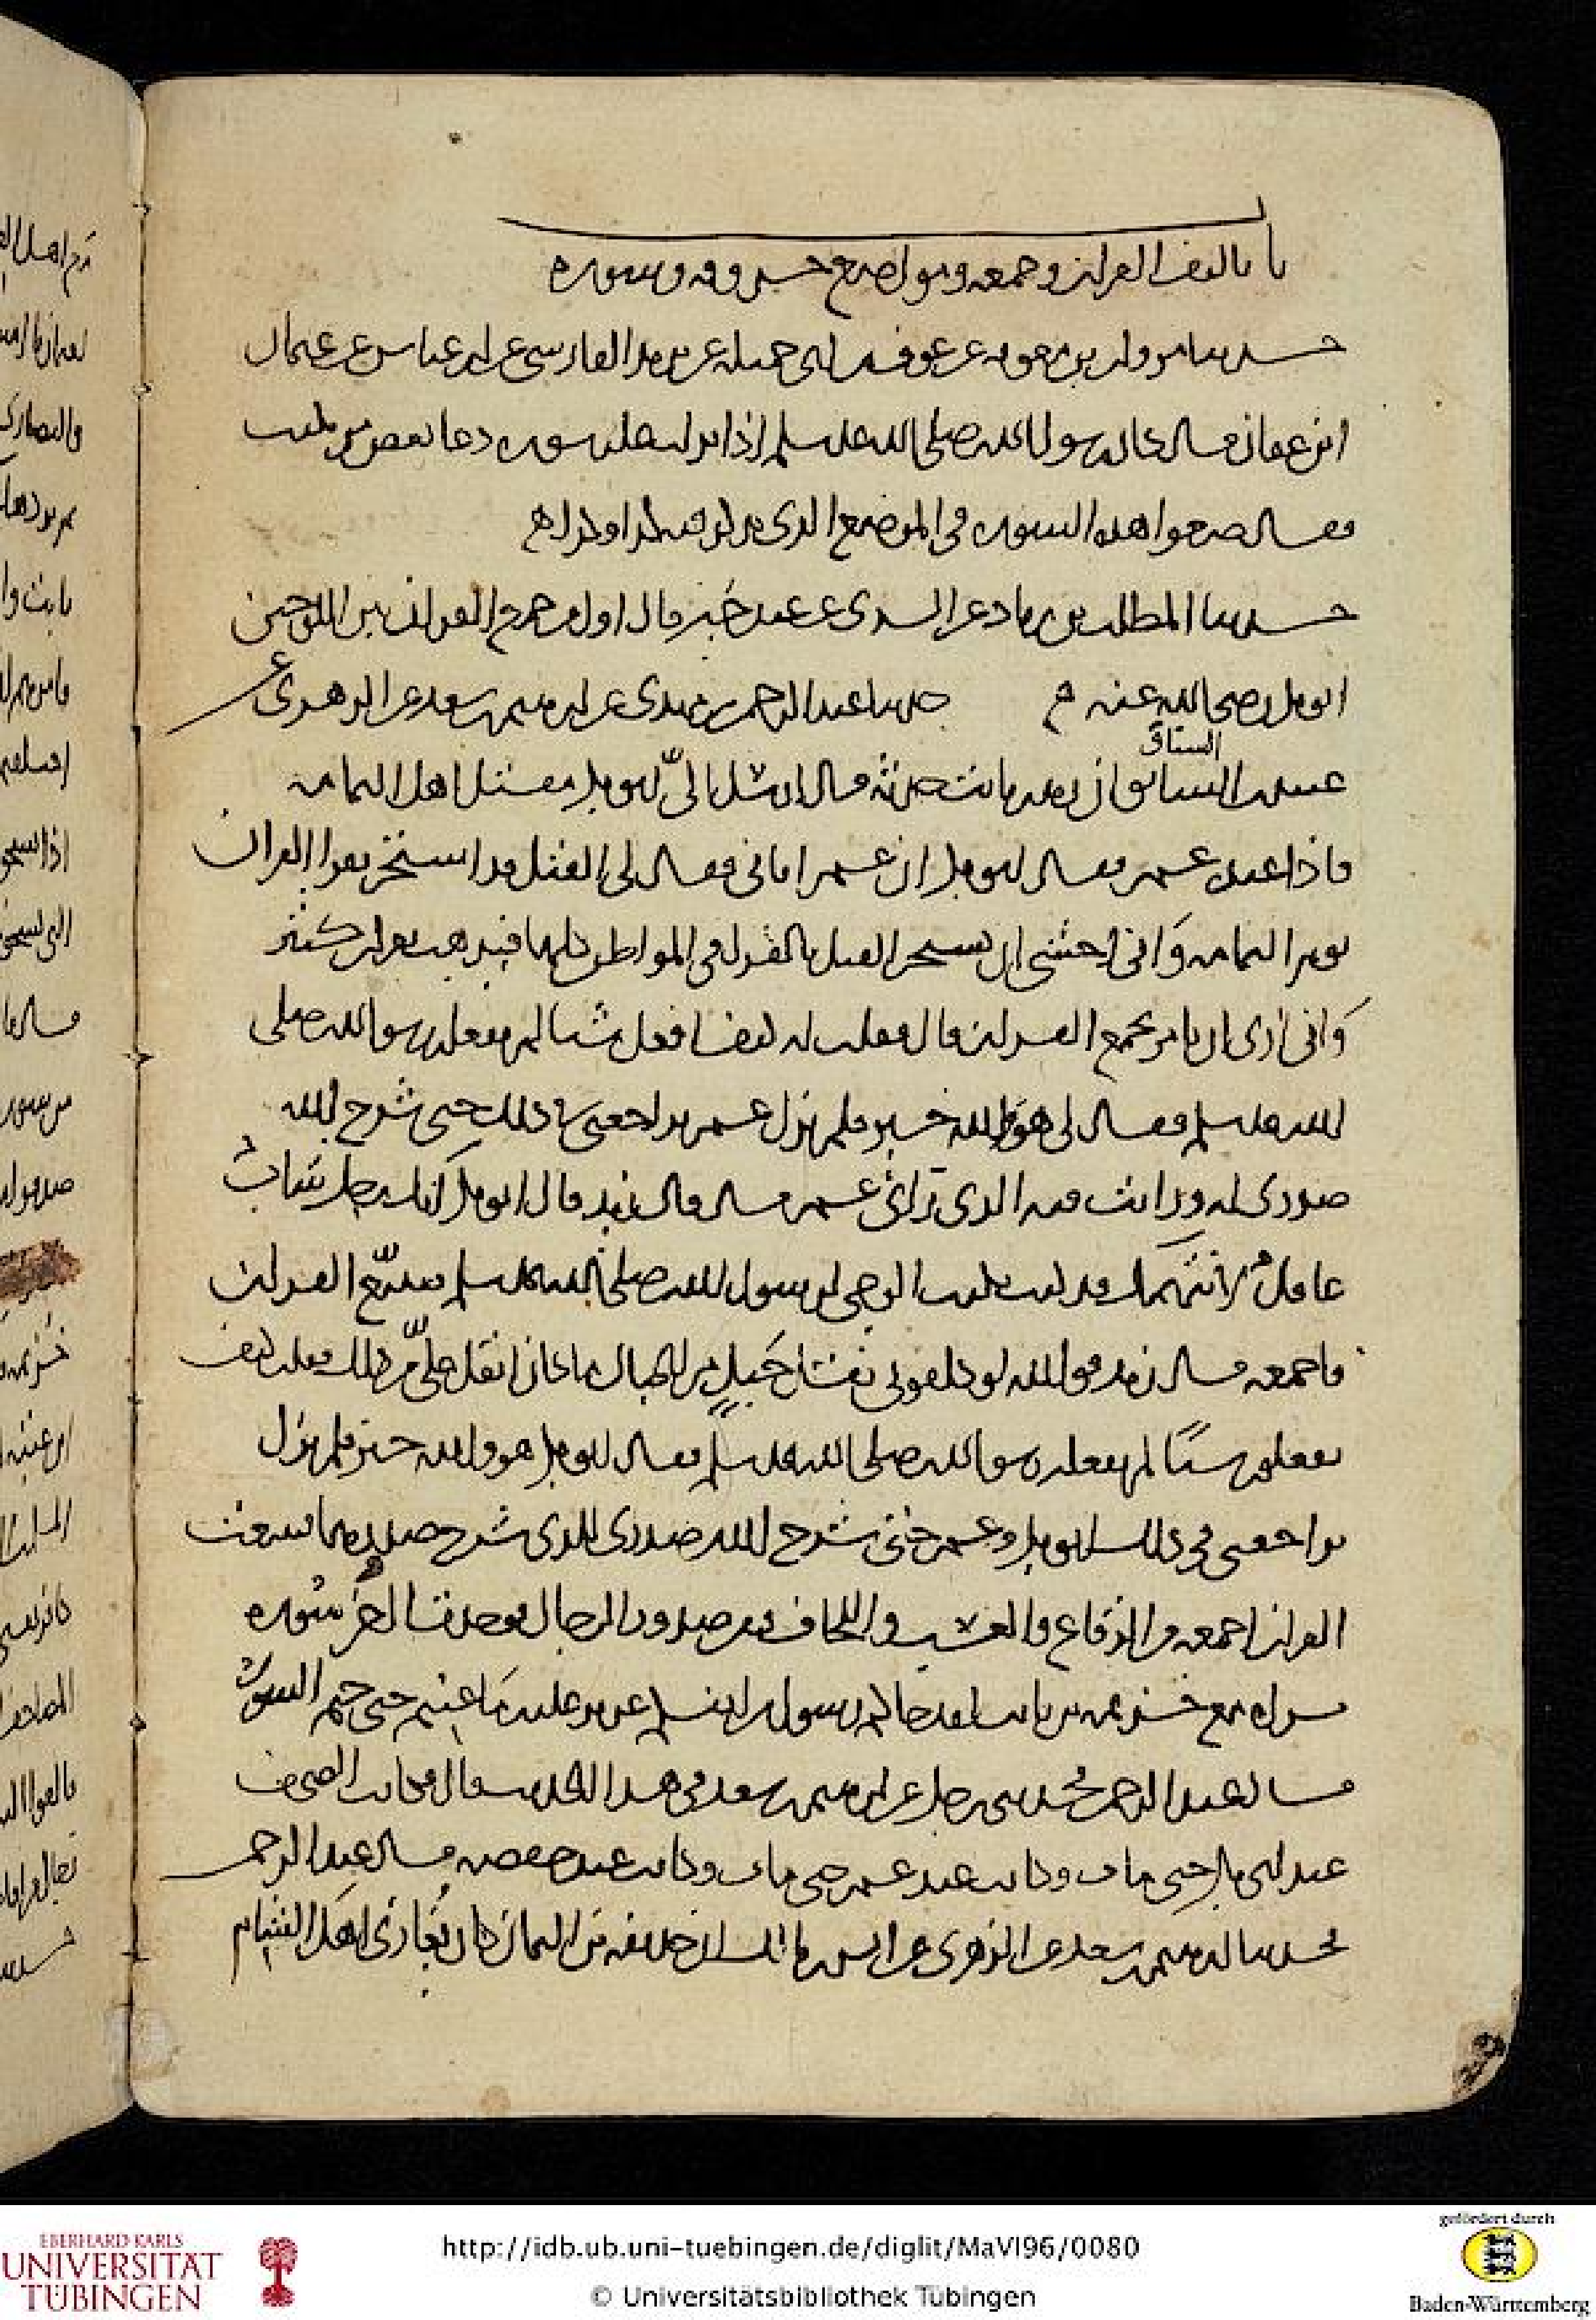 باب تاليف القران وجمعه ومواضع حروفه وسوره
حدثنا مروان بن معوية عن عوف بن ابي جميلة عن يزيد الفارسي عن ابن عباس عن عثمان
ابن عفان قال كان رسول الله صلى الله عليه وسلم اذا نزلت عليه سورة دعا بعض من يكتب
فقال ضعوا هذه السورة في الموضع الذي يذكر فيه كذا وكذا
حدثنا المطلب بن زياد عن السدي عن عبد خير قال اول من جمع القران بين اللوحين
ابو بكر رضي الله عنه حدثنا عبد الرحمن بن مهدي عن ابرهيم بن سعد عن الزهري عن
السباق
عبيد بن السباق ان زيد بن ثابت حدثه قال ارسل الي ابو بكر مقتل اهل اليمامه
فاذا عنده عمر فقال ابو بكر ان عمر اتاني فقال لي القتل قد استحر بقرا القران
يوم اليمامه واني اخشى ان يستحر القتل بالقرا في المواطن كلها فيذهب قران كثير
واني ارى ان تامر بجمع القران قال فقلت له كيف افعل شيا لم يفعله رسول الله صلى
الله عليه وسلم فقال لي هو والله خير فلم يزل عمر يراجعني في ذلك حتى شرح الله
صدري له ورايت فيه الذي راى عمر قال قال زيد قال ابو بكر انك رجل شاب
عاقل لا نتهمك قد كنت تكتب الوحي لرسول الله صلى الله عليه وسلم فتتبع القران
فاجمعه قال زيد فوالله لو كلفوني نقل جبل من الجبال ما كان اثقل علي من ذلك فقلت كيف
تفعلون شيا لم يفعله رسول الله صلى الله عليه وسلم فقال ابو بكر هو والله خير فلم يزل
يراجعني في ذلك ابو بكر وعمر حتى شرح الله صدري للذي شرح صدريهما فتتبعت
القران اجمعه من الرقاع والعسب واللخاف ومن صدور الرجال فوجدت اخر سورة
براة مع خزيمة بن ثابت لقد جاكم رسول من انفسكم عزيز عليه ما عنتم حتى ختم السورة
قال عبد الرحمن فحدثني رجل عن ابرهيم بن سعد في هذا الحديث قال فكانت الصحف
عند ابي بكر حتى مات وكانت عند عمر حتى مات وكانت عند حفصه قال عبد الرحمن
فحدثنا ابرهيم بن سعد عن الزهري عن انس بن مالك ان حذيفة بن اليمان كان يغازي اهل الشام
EBERHARD KARLS
UNIVERSITÄT
TÜBINGEN
http://idb.ub.uni-tuebingen.de/diglit/MaVI96/0080
© Universitätsbibliothek Tübingen
gefördert durch
Baden-Württemberg